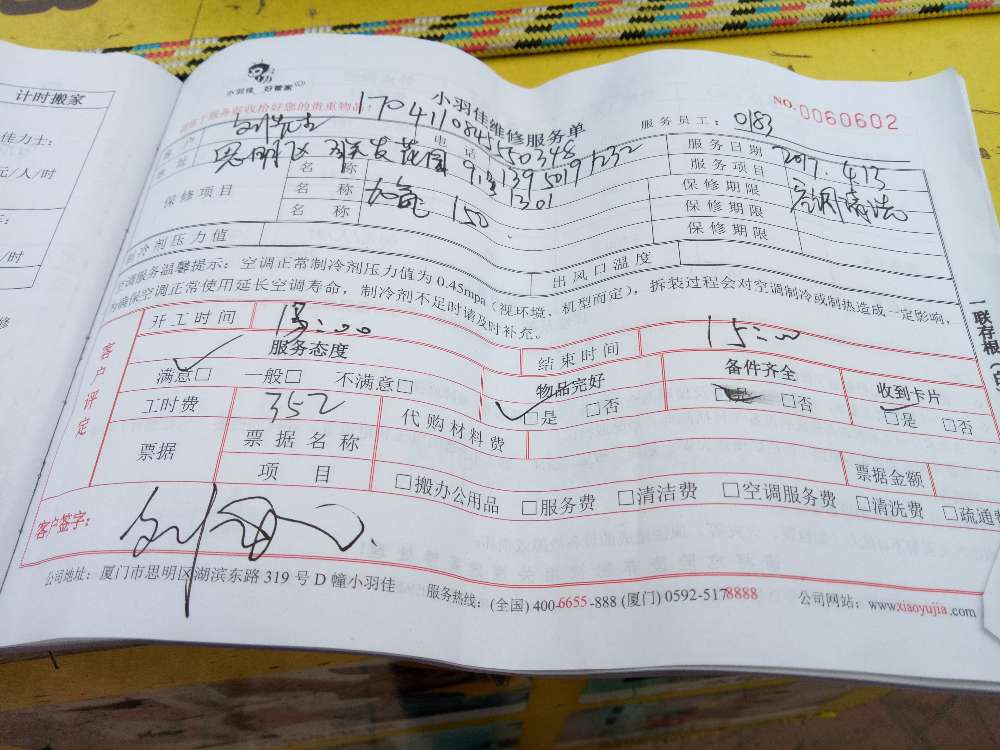 计时搬家
佳力士:
元/人/时
/时
修
小羽佳 好管家
NO.0060602
小羽佳维修服务单
服务员工: 0183
170411084550348
客户 刘先生 电话 服务日期 2017.4.13
地址 思明区 花园 服务项目 空调清洗
保修项目 名称 加氟 150 保修期限
名称 1301 保修期限
名称 保修期限
制冷剂压力值 出风口温度
空调服务温馨提示:空调正常制冷剂压力值为0.45mpa(视环境、机型而定),拆装过程会对空调制冷或制热造成一定影响,
为确保空调正常使用延长空调寿命,制冷剂不足时请及时补充。
一联存根
客户评定
开工时间 结束时间 15:00
服务态度 物品完好 备件齐全 收到卡片
满意□ 一般□ 不满意□ □是 □否 □是 □否 □是 □否
工时费 352 代购材料费
票据 票据名称 票据金额
项目 □搬办公用品 □服务费 □清洁费 □空调服务费 □清洗费 □疏通费
客户签字:
公司地址:厦门市思明区湖滨东路319号D幢小羽佳 服务热线:(全国)400-6655-888 (厦门)0592-5178888 公司网站:www.xiaoyujia.com